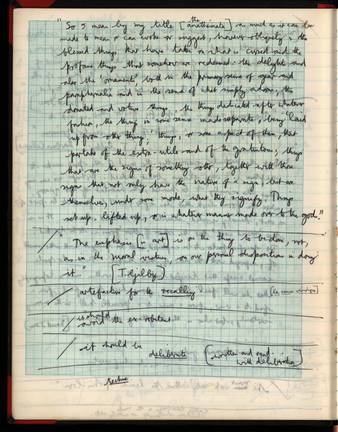 "So I mean by my title [the anathemata] as much as it can be
made to mean or can evoke or suggest, however obliquely: the
blessed things that have taken on what is cursed and the
profane things that somehow are redeemed: the delights and
also the 'ornaments', both in the primary sense of gear and
paraphernalia and in the sense of what simply adorns; the
donated and votive things, the things dedicated after whatever
fashion, the things in some sense made separate, being 'laid
up from other things'; things, or some aspect of them, that
partake of the extra-utile and of the gratuitous; things
that are the signs of something other, together with those
signs that not only have the nature of a sign, but are
themselves, under some mode, what they signify. Things
set up, lifted up, or in whatever manner made over to the gods."
"The emphasis [in art] is on the thing to be done, not,
as in the moral virtues, on our personal disposition in doing
it." [T. Gilby]
artefaction for the recalling
it should
avoid the ex-orbitant
it should be
deliberate [written and read
with deliberation]